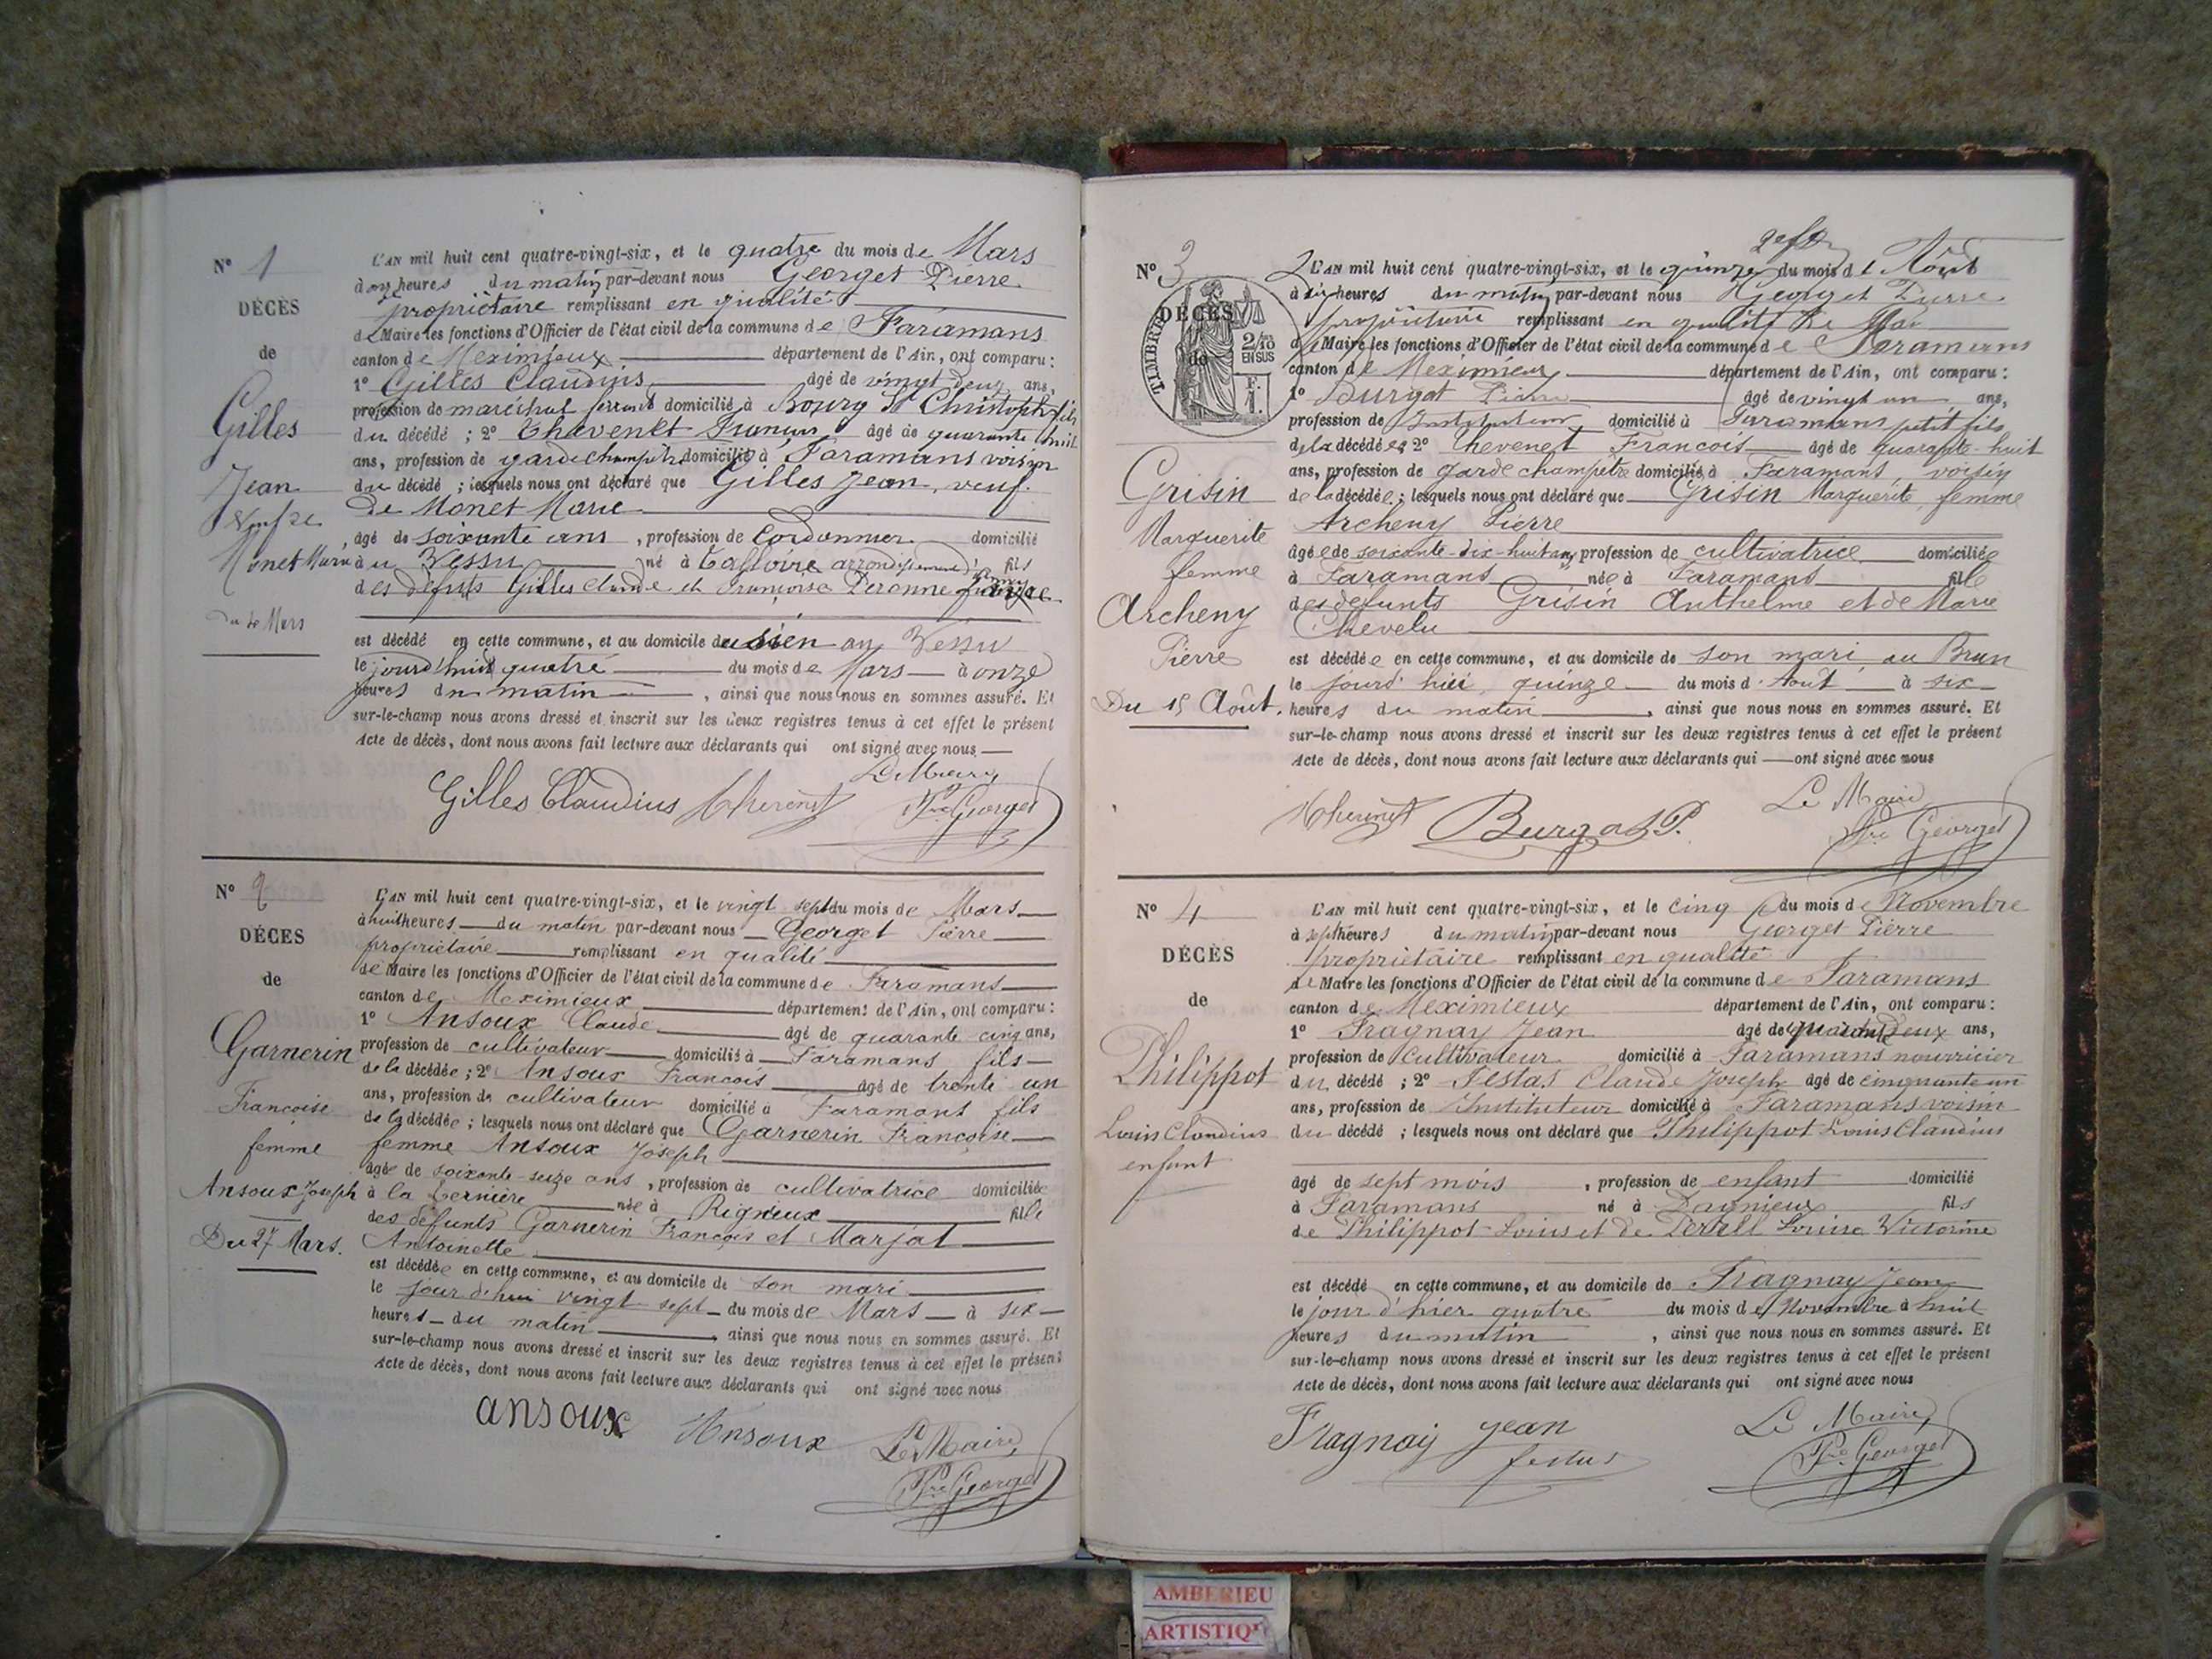 N° 1
DÉCÈS
de
Gilles
Jean
veuf de
Monet Marie
Du 4 Mars
L'AN mil huit cent quatre-vingt-six, et le quatre du mois de Mars
à onze heures du matin par-devant nous Georget Pierre
propriétaire remplissant en qualité
de Maire les fonctions d'Officier de l'état civil de la commune de Faramans
canton de Meximieux département de l'Ain, ont comparu :
1° Gilles Claudius âgé de vingt deux ans,
profession de maréchal ferrant domicilié à Bourg St Christophe fils
du décédé ; 2° Thévenet François âgé de quarante huit
ans, profession de garde champêtre domicilié à Faramans voisin
du décédé ; lesquels nous ont déclaré que Gilles Jean, veuf
De Monet Marie
âgé de soixante ans, profession de Cordonnier domicilié
au Vessu né à arrondissement d' fils
des défunts Gilles Claude et Françoise Peronne
est décédé en cette commune, et au domicile du sien au Vessu
le jourd'hui quatre du mois de Mars à onze
heures du matin, ainsi que nous nous en sommes assuré. Et
sur-le-champ nous avons dressé et inscrit sur les deux registres tenus à cet effet le présent
Acte de décès, dont nous avons fait lecture aux déclarants qui ont signé avec nous
Le Maire
Gilles Claudius Thévenet Pre Georget
N° 2
DÉCÈS
de
Garnerin
Françoise
femme
Ansoux Joseph
Du 27 Mars.
L'AN mil huit cent quatre-vingt-six, et le vingt sept du mois de Mars
à huit heures du matin par-devant nous Georget Pierre
propriétaire remplissant en qualité
de Maire les fonctions d'Officier de l'état civil de la commune de Faramans
canton de Meximieux département de l'Ain, ont comparu :
1° Ansoux Claude âgé de quarante cinq ans,
profession de cultivateur domicilié à Faramans fils
de la décédée ; 2° Ansoux François âgé de trente un
ans, profession de cultivateur domicilié à Faramans fils
de la décédée ; lesquels nous ont déclaré que Garnerin Françoise
femme Ansoux Joseph
âgée de soixante-seize ans, profession de cultivatrice domiciliée
à la Bernière née à Rigneux fille
des défunts Garnerin François et Marjat
Antoinette
est décédée en cette commune, et au domicile de son mari
le jour d'hui vingt sept du mois de Mars à six
heures du matin, ainsi que nous nous en sommes assuré. Et
sur-le-champ nous avons dressé et inscrit sur les deux registres tenus à cet effet le présent
Acte de décès, dont nous avons fait lecture aux déclarants qui ont signé avec nous
ansoux Ansoux Le Maire
Pre Georget
N° 3
TIMBRE
2/10
EN SUS
DÉCÈS
de
Grisin
Marguerite
femme
Archeny
Pierre
Du 15 Août.
L'AN mil huit cent quatre-vingt-six, et le quinze du mois d'Août
à dix heures du matin par-devant nous Georget Pierre
propriétaire remplissant en qualité de Mai
de Maire les fonctions d'Officier de l'état civil de la commune de Faramans
canton de Meximieux département de l'Ain, ont comparu :
1° Burgat Pierre âgé de vingt un ans,
profession de Instituteur domicilié à Faramans petit fils
de la décédée 2° Chevenet François âgé de quarante-huit
ans, profession de garde champêtre domicilié à Faramans, voisin
de la décédée ; lesquels nous ont déclaré que Grisin Marguerite, femme
Archeny Pierre
âgée de soixante-dix-huit ans, profession de cultivatrice domiciliée
à Faramans née à Faramans fille
des défunts Grisin Anthelme et de Marie
Chevelu
est décédée en cette commune, et au domicile de son mari, au Brun
le jourd'hui, quinze du mois d'Août à six
heures du matin, ainsi que nous nous en sommes assuré. Et
sur-le-champ nous avons dressé et inscrit sur les deux registres tenus à cet effet le présent
Acte de décès, dont nous avons fait lecture aux déclarants qui ont signé avec nous
Le Maire
Thévenet Burgat P. Pre Georget
N° 4
DÉCÈS
de
Philippot
Louis Claudius
enfant
L'AN mil huit cent quatre-vingt-six, et le cinq du mois de Novembre
à sept heures du matin par-devant nous Georget Pierre
propriétaire remplissant en qualité
de Maire les fonctions d'Officier de l'état civil de la commune de Faramans
canton de Meximieux département de l'Ain, ont comparu :
1° Fragnay Jean âgé de quarante deux ans,
profession de Cultivateur domicilié à Faramans nourricier
du décédé ; 2° Festas Claude Joseph âgé de cinquante un
ans, profession de Instituteur domicilié à Faramans voisin
du décédé ; lesquels nous ont déclaré que Philippot Louis Claudius
âgé de sept mois, profession de enfant domicilié
à Faramans né à Dagnieux fils
de Philippot Louis et de Louise Victorine
est décédé en cette commune, et au domicile de Fragnay Jean
le jour d'hier quatre du mois de Novembre à huit
heures du matin, ainsi que nous nous en sommes assuré. Et
sur-le-champ nous avons dressé et inscrit sur les deux registres tenus à cet effet le présent
Acte de décès, dont nous avons fait lecture aux déclarants qui ont signé avec nous
Le Maire
Fragnay jean festas Pre Georget
AMBERIEU
ARTISTIQ